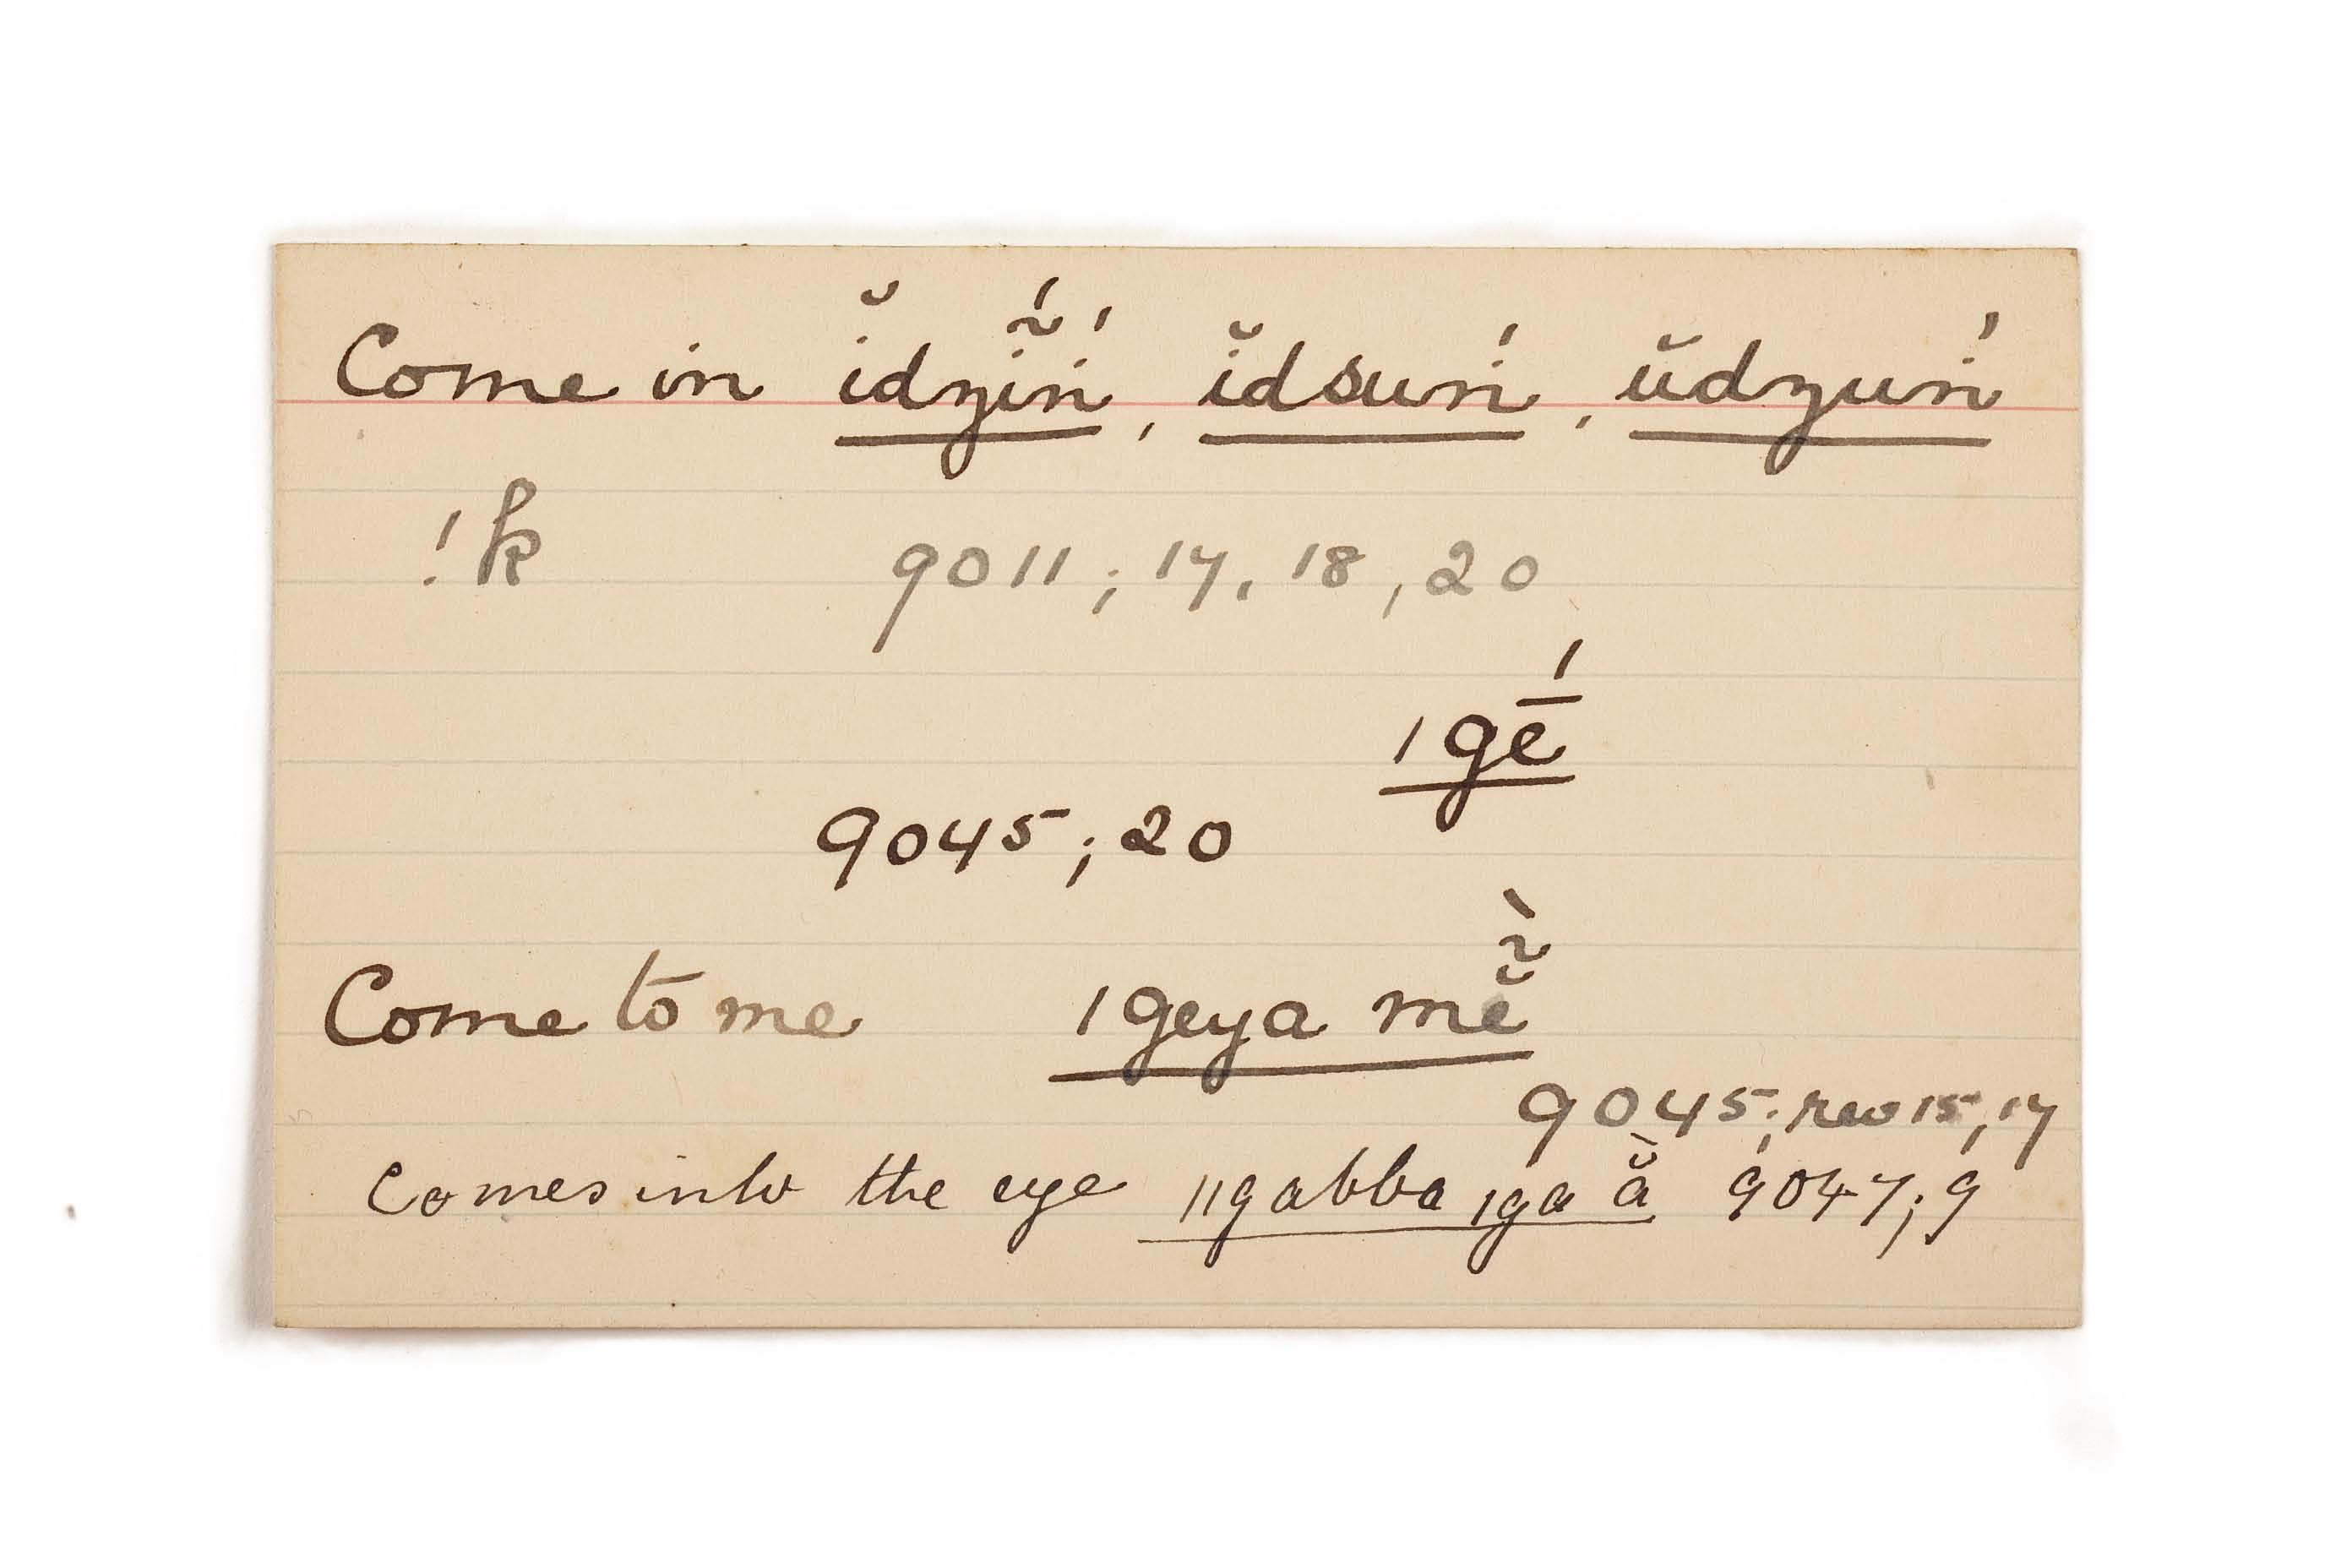 Come in ĭdzĩ́ṅ́, ĭdsuṅ́, ŭdzuṅ́
!k 9011; 17, 18, 20
ǀgḗ
9045; 20
Come to me ǀgeya mĕ̃̀
9045; rev 15, 17
Comes into the eye ǁgabba ǀga ằ 9047; 9